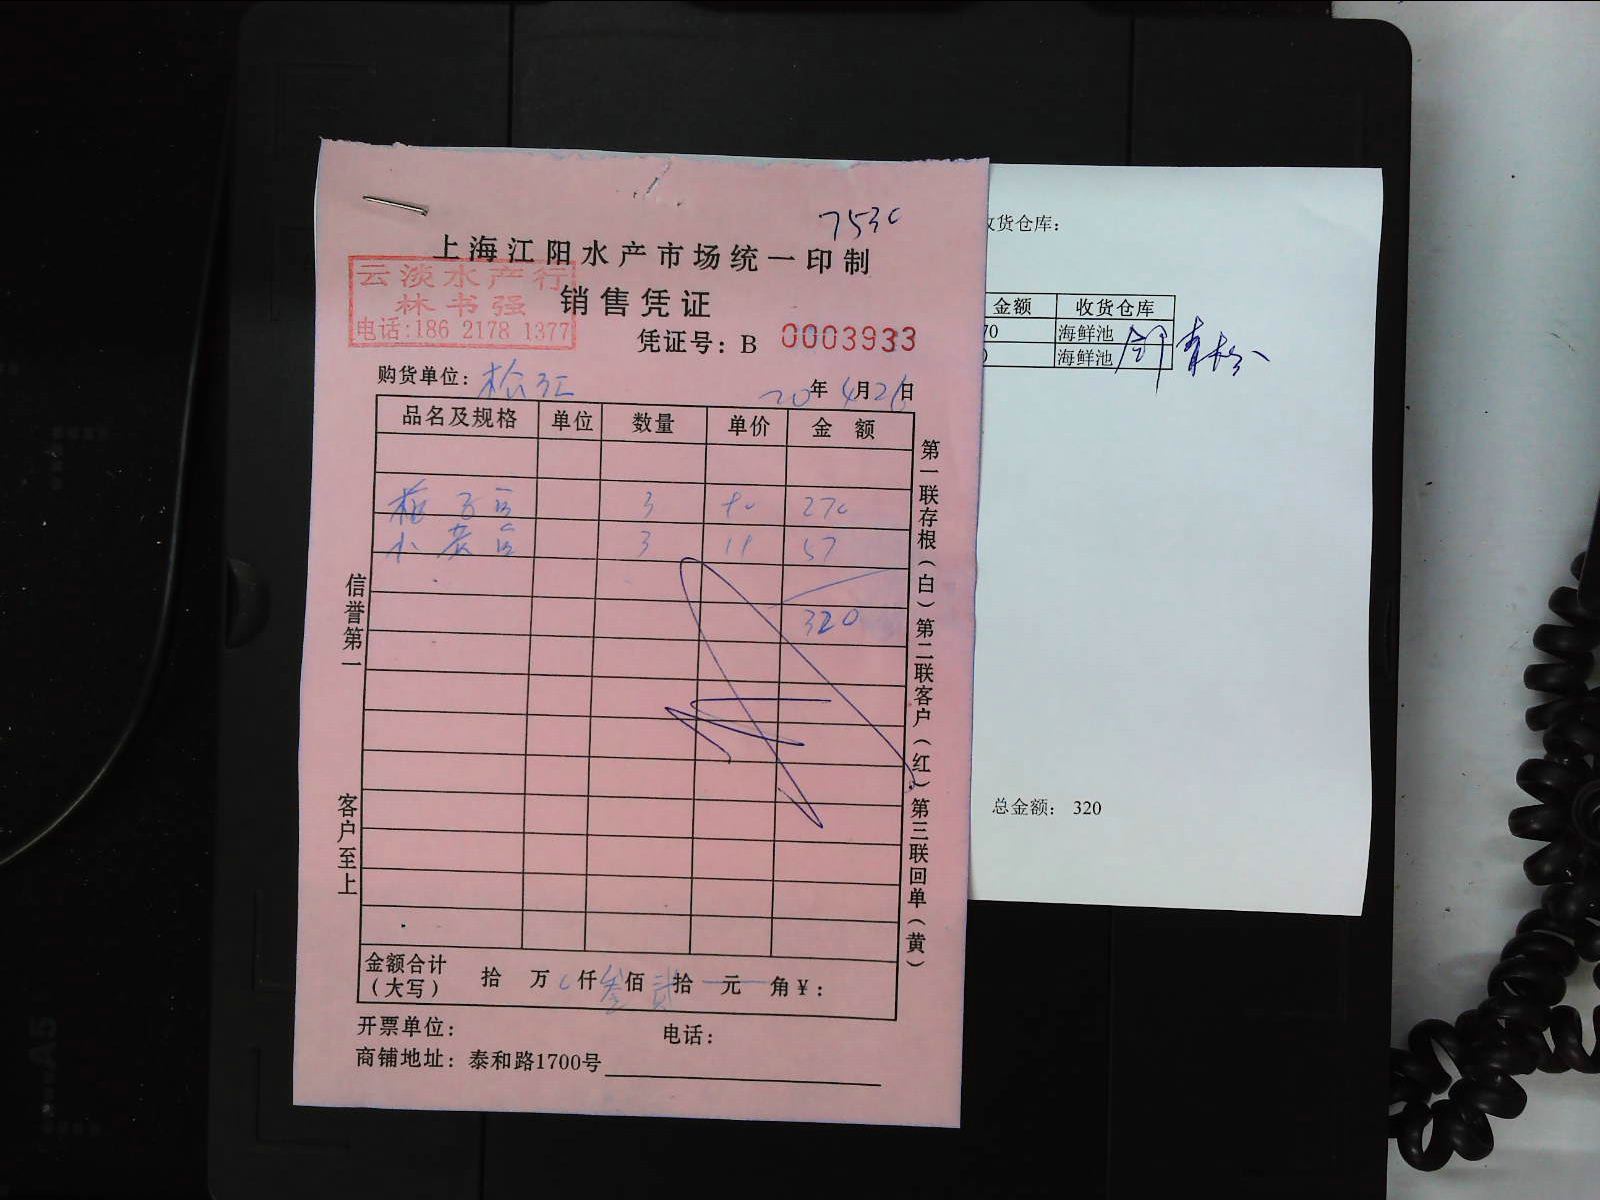 7530
上海江阳水产市场统一印制
云淡水产行
林书强
电话:186 2178 1377
销售凭证
凭证号：B 0003933
购货单位：松江 20年4月26日
品名及规格 单位 数量 单价 金额
3 90 270
小 3 57
320
信誉第一
客户至上
第一联存根（白）第二联客户（红）第三联回单（黄）
金额合计（大写） 拾 万 仟叁佰贰拾 元 角￥：
开票单位： 电话：
商铺地址：泰和路1700号
收货仓库：
金额 收货仓库
70 海鲜池
海鲜池
总金额： 320